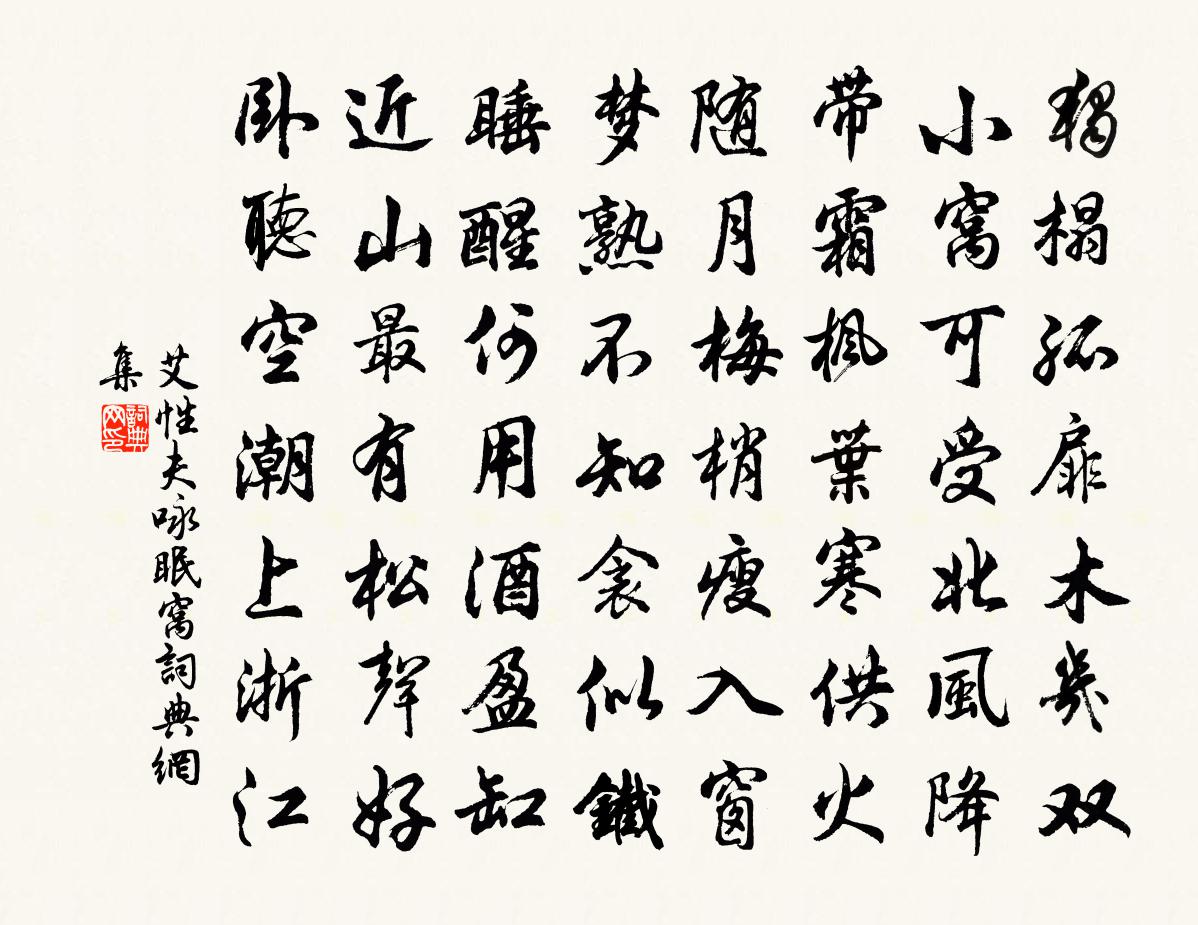 獨榻孤扉木几双
小窝可受北風降
带霜楓葉寒供火
随月梅梢瘦入窗
梦熟不知衾似鐵
睡醒何用酒盈缸
近山最有松聲好
卧聽空潮上浙江
艾性夫咏眠窝詞典網
集
詞典网印